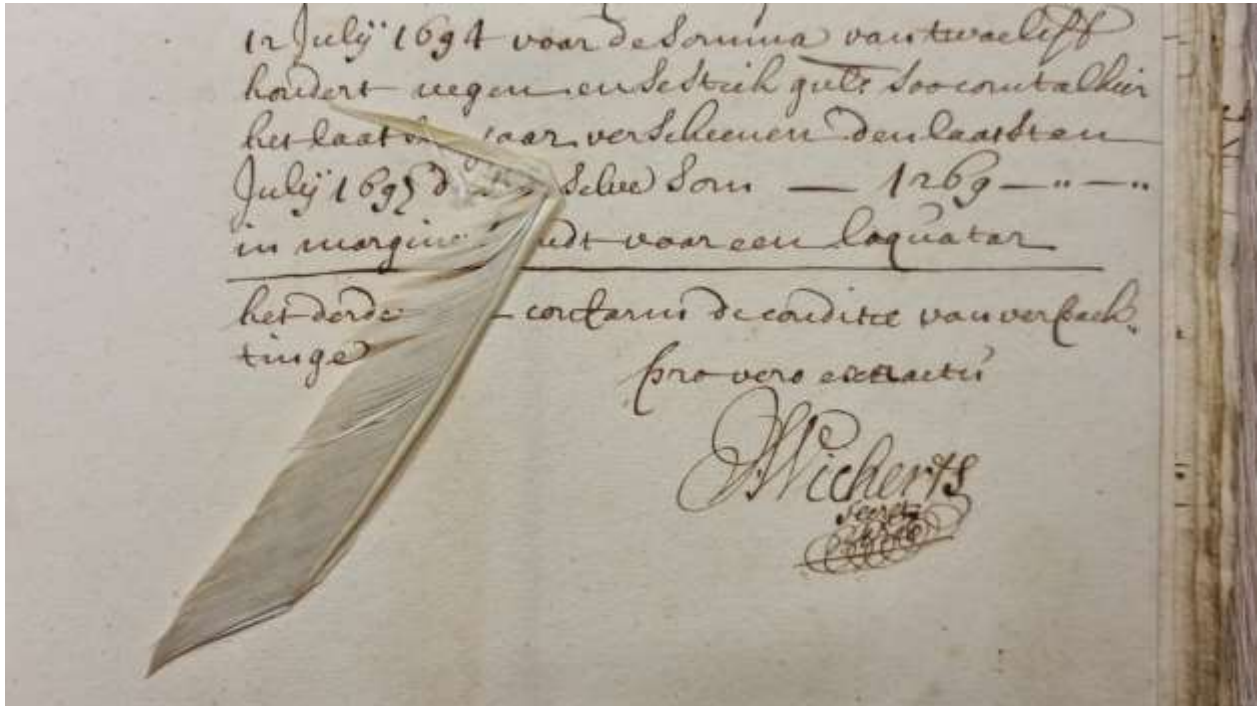 12 Julÿ 1694 voor de Somma van twaeliff
hondert negen en sestich guls soo comt alhier
het laatste jaar verscheenen den laatsten
Julÿ 1695 d Selve Som — 1269 — " — "
in margine udt voor een loquatar
het derde conform de conditie van verpach„
tinge
pro vero extractu
Wicherts
Secret